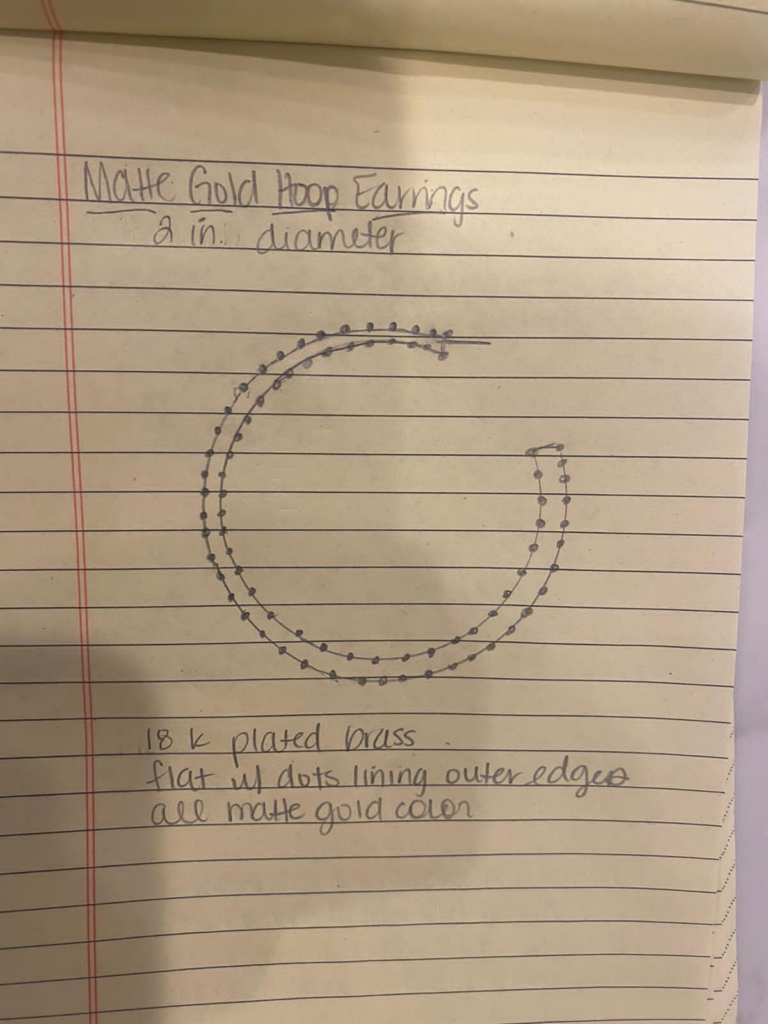 Matte Gold Hoop Earrings
2 in. diameter
18 k plated brass.
flat w/ dots lining outer edges
all matte gold color